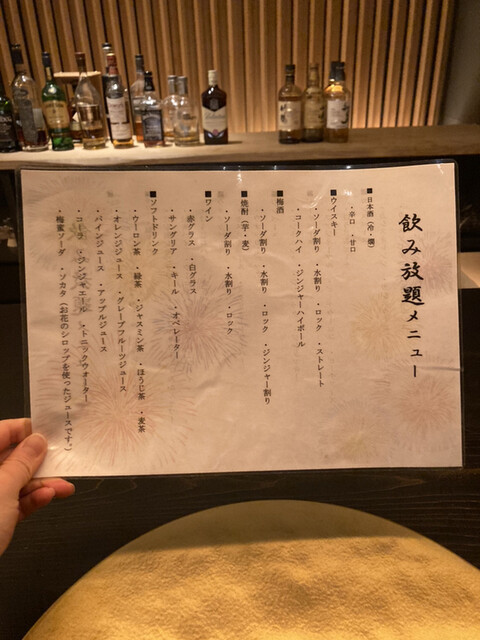 飲み放題メニュー
■日本酒(冷・燗)
・辛口 ・甘口
■ウイスキー
・ソーダ割り ・水割り ・ロック ・ストレート
・コークハイ ・ジンジャーハイボール
■梅酒
・ソーダ割り ・水割り ・ロック ・ジンジャー割り
■焼酎(芋・麦)
・ソーダ割り ・水割り ・ロック
■ワイン
・赤グラス ・白グラス
・サングリア ・キール ・オペレーター
■ソフトドリンク
・ウーロン茶 ・緑茶 ・ジャスミン茶 ・ほうじ茶 ・麦茶
・オレンジジュース ・グレープフルーツジュース
・パインジュース ・アップルジュース
・コーラ ・ジンジャエール ・トニックウォーター
・梅蜜ソーダ ・ソカタ(お花のシロップを使ったジュースです。)